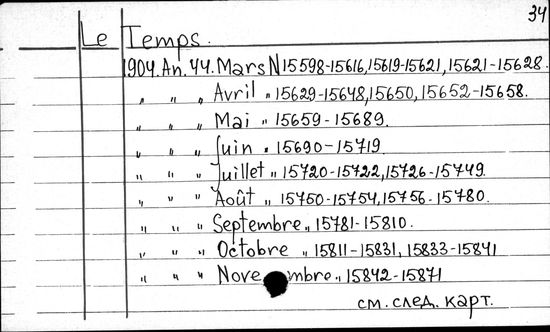 34
Le Temps.
1904. An. 44. Mars N 15598-15616, 15619-15621, 15621-15628.
" " " Avril " 15629-15648, 15650, 15652-15658.
" " " Mai " 15659-15689.
" " " Juin " 15690-15719
" " " Juillet " 15720-15722, 15726-15749.
" " " Août " 15750-15754, 15756-15780.
" " " Septembre " 15781-15810.
" " " Octobre " 15811-15831, 15833-15841
" " " Novembre " 15842-15871
см. след. карт.